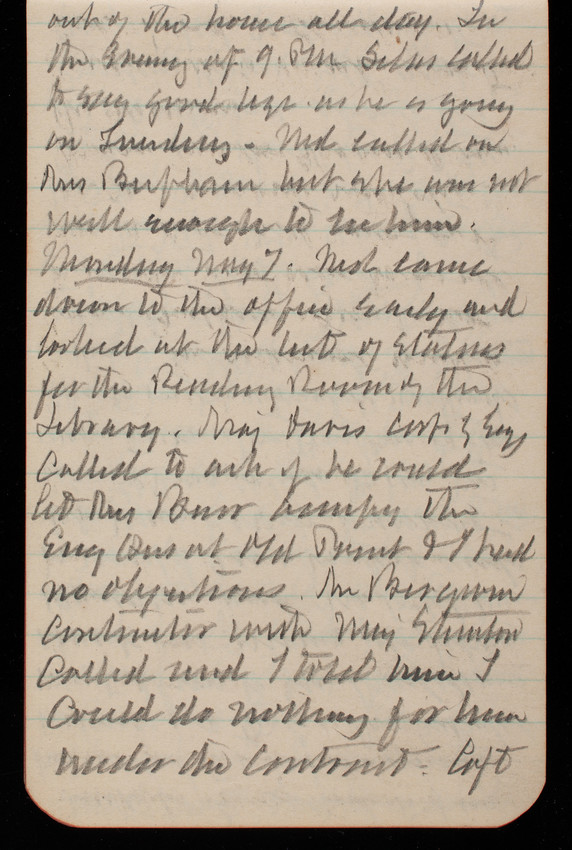 out of the house all day. In
the Evening at 9. PM Silas called
to say good bye as he is going
on Tuesday. Ned called on
Mrs but she was not
well enough to see him.
Monday May 7. Ned came
down to the office early and
looked at the list of Statues
for the Reading Room of the
Library. Maj Davis Corps of Eng
Called to ask if he could
let Mrs Burr occupy the
Eng Qrs at Old Point & I had
no objections. Mr
Contractor with Maj Stanton
Called and I told him I
Could do nothing for him
under the Contract. Capt